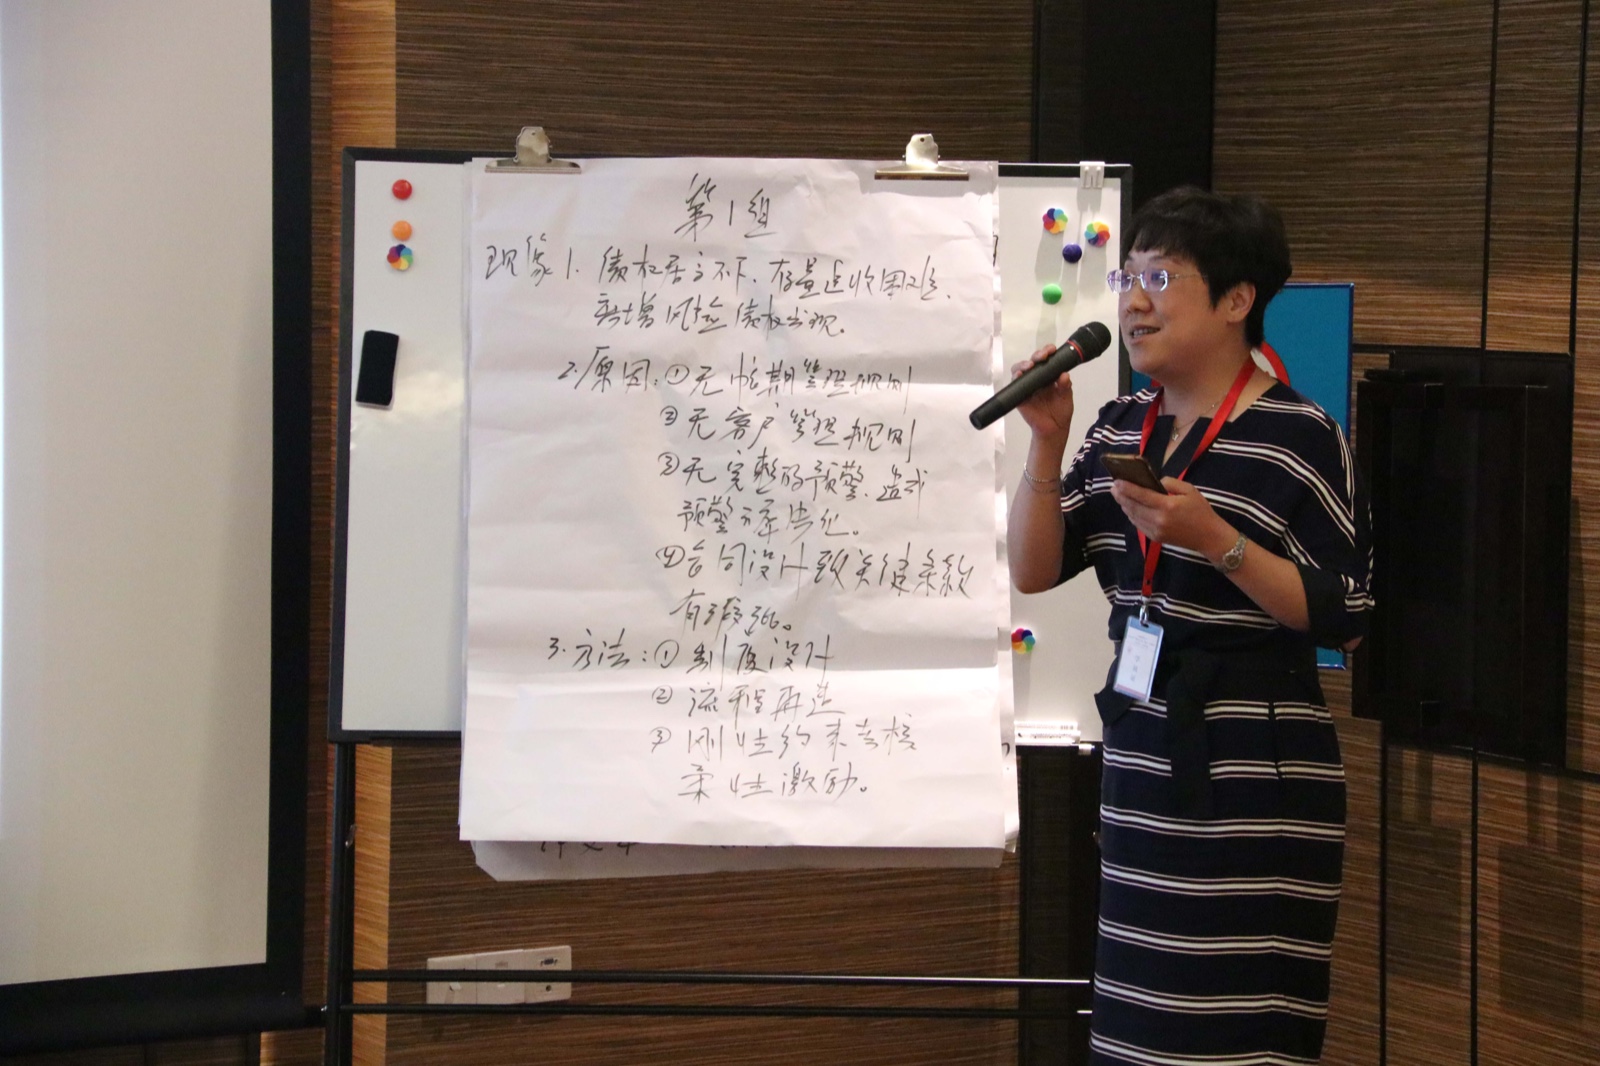 第1组
现象1. 债权居高不下、存量追收困难、
新增风险债权出现。
2.原因:①无账期管理规则
②无客户管理规则
③无完整的预警、造成
预警体系失化。
④合同设计致关键条款
有
3.方法:①制度设计
②流程再造
③刚性约束考核
柔性激励。